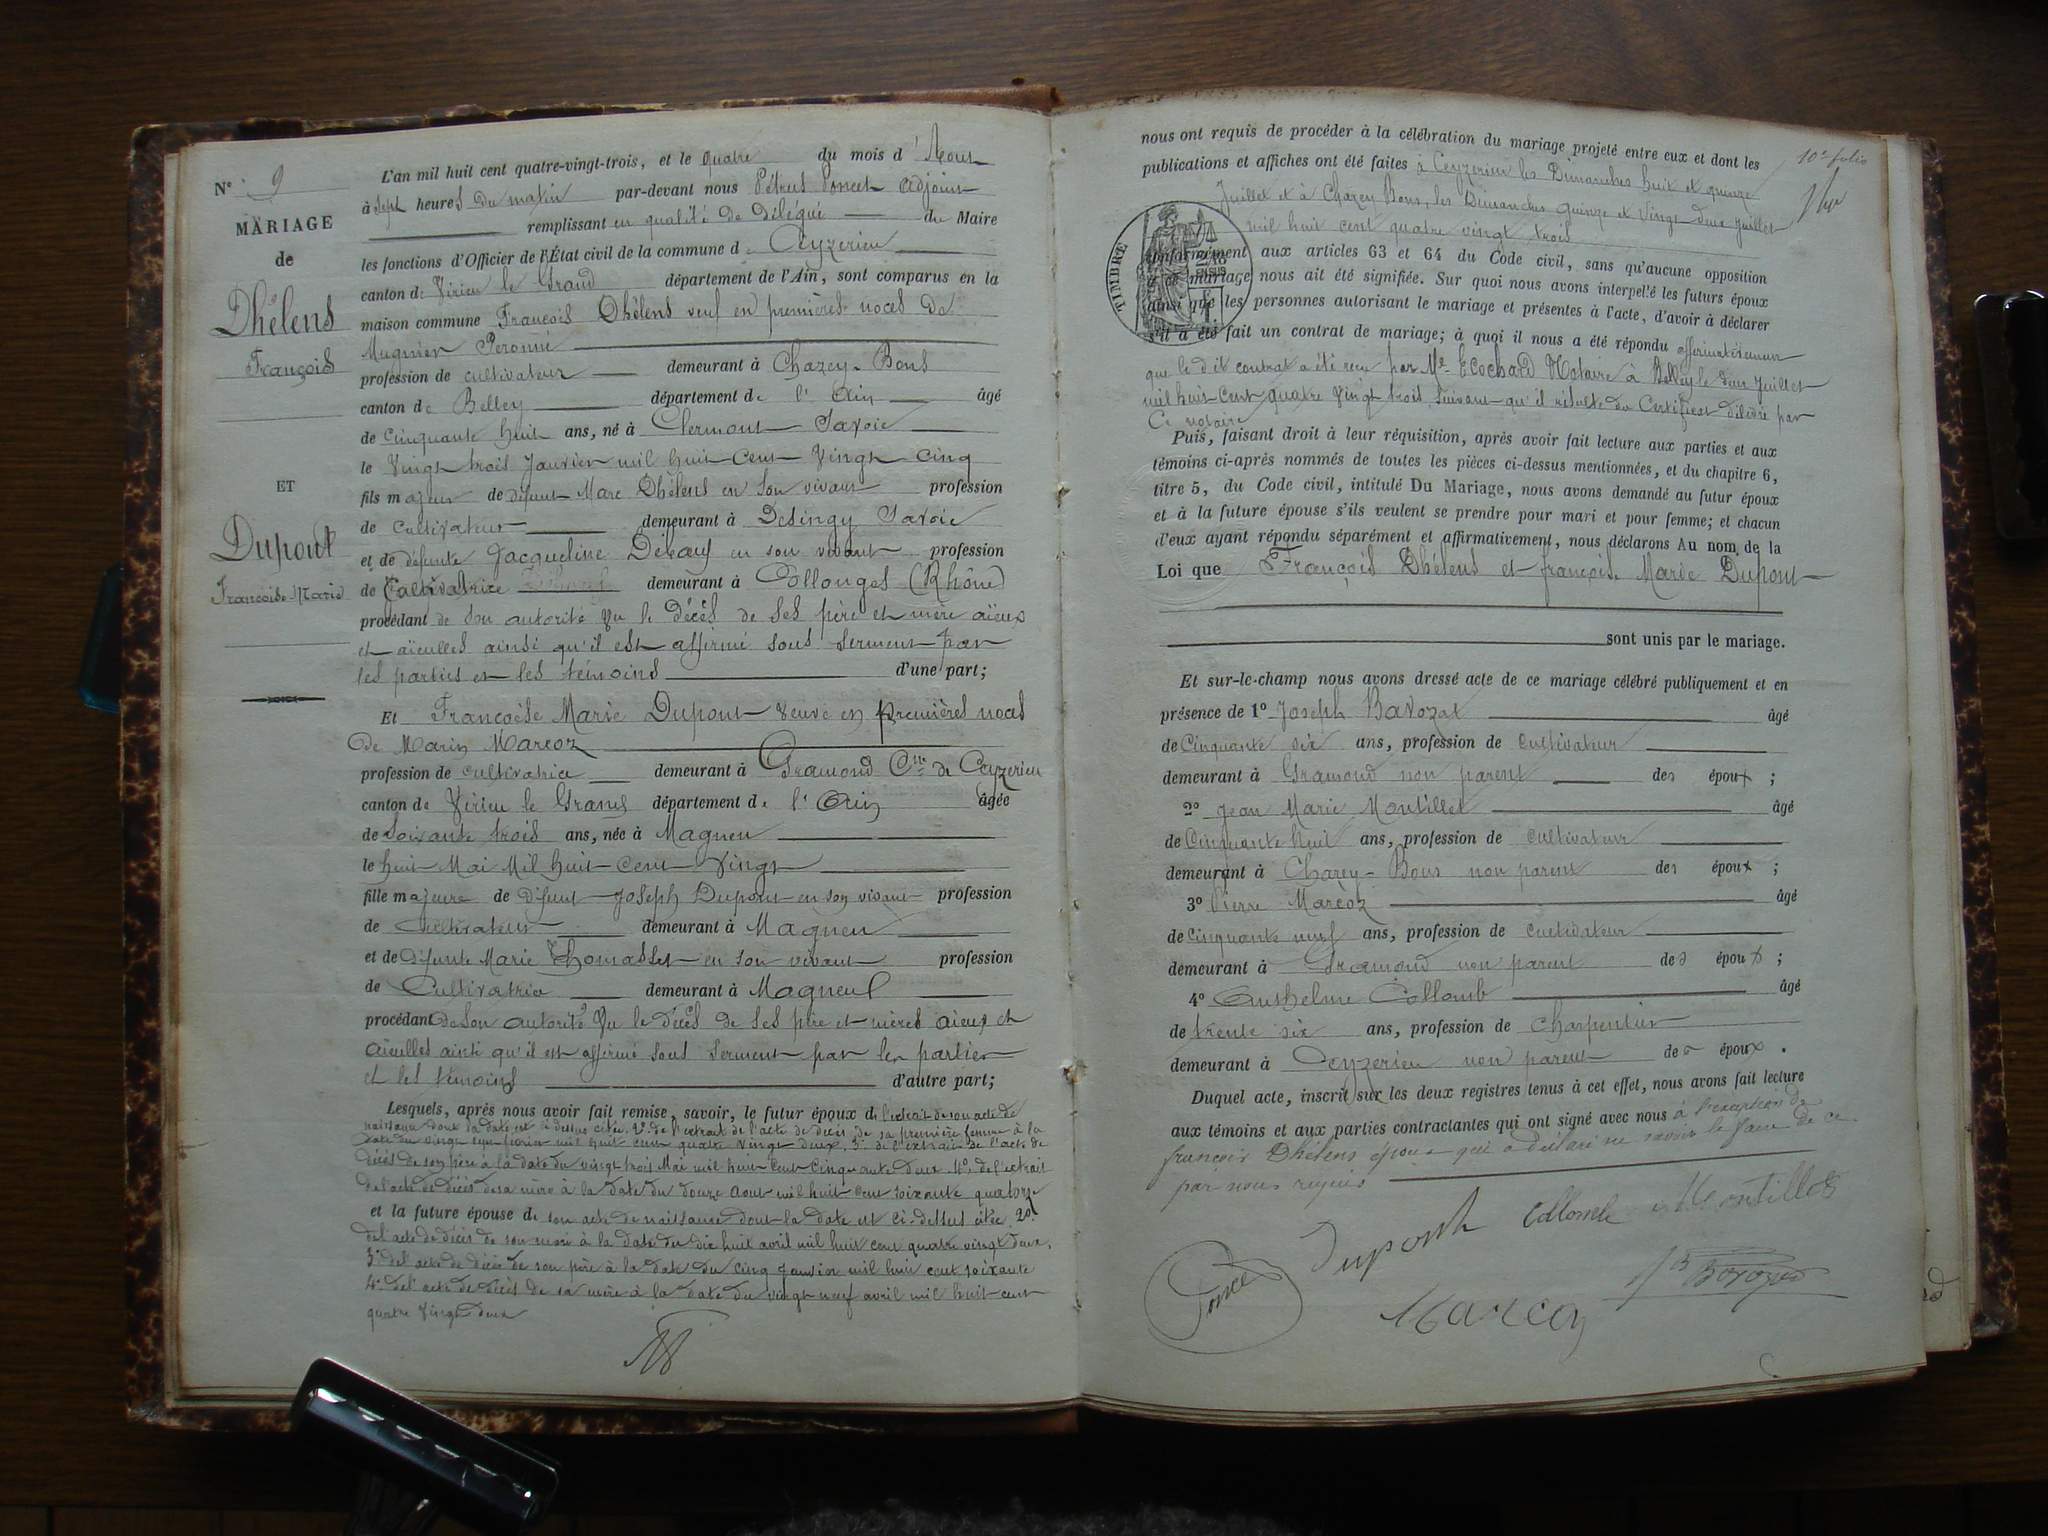 N° 9
MARIAGE
de
Dhélens
François
ET
Dupont
Françoise-Marie
L'an mil huit cent quatre-vingt-trois, et le quatre du mois d'Aout
à sept heures du matin par-devant nous Pétrus Poncet adjoint
remplissant en qualité de délégué du Maire
les fonctions d'Officier de l'État civil de la commune de Ceyzerieu
canton de Virieu le Grand département de l'Ain, sont comparus en la
maison commune François Dhélens veuf en premières noces de
Mugnier Peronne
profession de cultivateur demeurant à Chazey-Bons
canton de Belley département de l'Ain âgé
de cinquante huit ans, né à Clermont Savoie
le Vingt trois Janvier mil huit cent vingt cinq
fils majeur de défunt Marc Dhélens en son vivant profession
de cultivateur demeurant à Desingy Savoie
et de défunte Jacqueline en son vivant profession
de Cultivatrice demeurant à Collonges (Rhône)
procédant de son autorité vu le décès de ses père et mère aïeux
et aïeulles ainsi qu'il est affirmé sous serment par
les parties et les témoins d'une part;
Et Françoise Marie Dupont veuve en premières noces
de Marin Marcoz
profession de cultivatrice demeurant à Gramond Cne de Ceyzerieu
canton de Virieu le Grand département de l'Ain âgée
de soixante trois ans, née à Magneu
le huit Mai Mil huit cent vingt
fille majeure de défunt Joseph Dupont en son vivant profession
de Cultivateur demeurant à Magneu
et de défunte Marie Thomasset en son vivant profession
de Cultivatrice demeurant à Magneul
procédant de son autorité vu le décès de ses père et mères aïeux et
aïeulles ainsi qu'il est affirmé sous serment par les parties
et les témoins d'autre part;
Lesquels, après nous avoir fait remise, savoir, le futur époux de l'extrait de son acte de
naissance dont la date est ci dessus citée. 2° de l'extrait de l'acte de décès de sa première femme à la
date du vingt un mil huit cent quatre vingt deux. 3° de l'extrait de l'acte de
décès de son père à la date du vingt trois Mai mil huit cent cinquante deux. 4° de l'extrait
de l'acte de décès de sa mère à la date du douze aout mil huit cent soixante quatorze
et la future épouse de son acte de naissance dont la date est ci-dessus citée. 2°
de l'acte de décès de son mari à la date du dix huit avril mil huit cent quatre vingt deux.
3° de l'acte de décès de son père à la date du cinq Janvier mil huit cent soixante
4° de l'acte de décès de sa mère à la date du vingt neuf avril mil huit cent
quatre vingt deux
10e folio
nous ont requis de procéder à la célébration du mariage projeté entre eux et dont les
publications et affiches ont été faites à Ceyzerieu les Dimanches huit et quinze
Juillet et à Chazey Bons, les Dimanches quinze et vingt deux Juillet
mil huit cent quatre vingt trois
TIMBRE
conformément aux articles 63 et 64 du Code civil, sans qu'aucune opposition
à ce mariage nous ait été signifiée. Sur quoi nous avons interpellé les futurs époux
ainsi que les personnes autorisant le mariage et présentes à l'acte, d'avoir à déclarer
s'il a été fait un contrat de mariage; à quoi il nous a été répondu affirmativement
que le dit contrat a été reçu par Me Ecochard Notaire à Belley le deux Juillet
mil huit cent quatre vingt trois, suivant qu'il résulte du Certificat délivré par
Ce notaire
Puis, faisant droit à leur réquisition, après avoir fait lecture aux parties et aux
témoins ci-après nommés de toutes les pièces ci-dessus mentionnées, et du chapitre 6,
titre 5, du Code civil, intitulé Du Mariage, nous avons demandé au futur époux
et à la future épouse s'ils veulent se prendre pour mari et pour femme; et chacun
d'eux ayant répondu séparément et affirmativement, nous déclarons Au nom de la
Loi que François Dhélens et françoise Marie Dupont
sont unis par le mariage.
Et sur-le-champ nous avons dressé acte de ce mariage célébré publiquement et en
présence de 1° Joseph Bavozat âgé
de cinquante six ans, profession de cultivateur
demeurant à Gramond non parent des époux;
2° Jean Marie Montillet âgé
de Cinquante huit ans, profession de cultivateur
demeurant à Chazey-Bons non parent des époux;
3° Pierre Marcoz âgé
de cinquante neuf ans, profession de cultivateur
demeurant à Gramond non parent des époux;
4° Anthelme Collomb âgé
de trente six ans, profession de charpentier
demeurant à Ceyzerieu non parent des époux.
Duquel acte, inscrit sur les deux registres tenus à cet effet, nous avons fait lecture
aux témoins et aux parties contractantes qui ont signé avec nous à l'exception de
françois Dhélens époux qui a déclaré ne savoir le faire de ce
par nous requis
Dupont Collomb Montillet
Poncet Marcoz